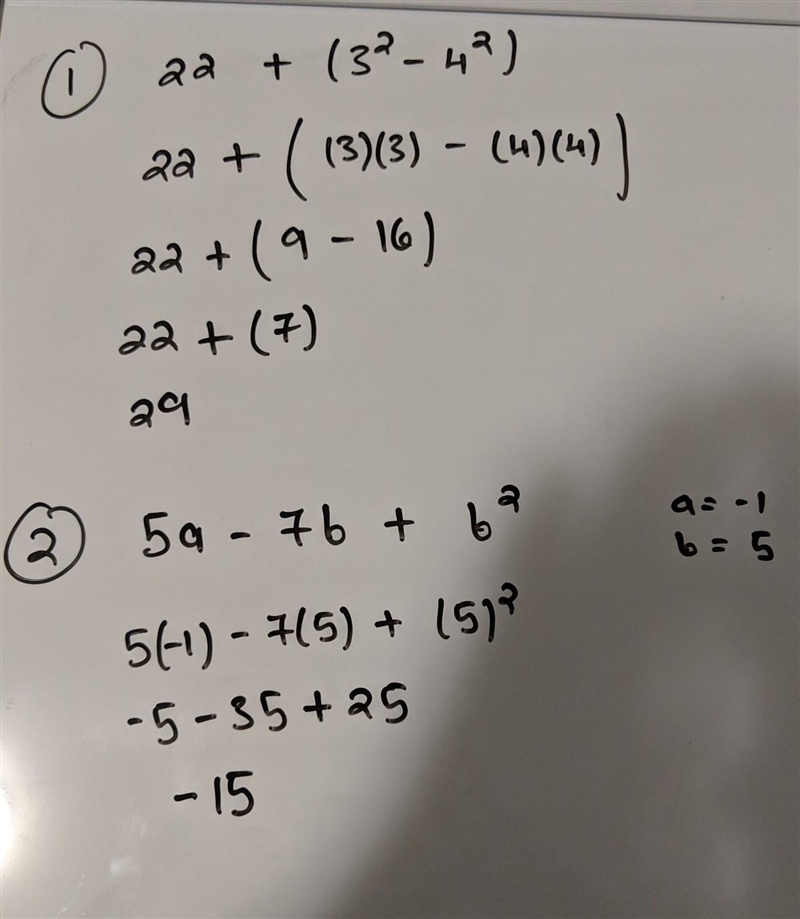 ① 22 + (3² - 4²)
22 + ((3)(3) - (4)(4))
22 + (9 - 16)
22 + (7)
29
② 5a - 7b + b² a = -1
b = 5
5(-1) - 7(5) + (5)²
-5 - 35 + 25
-15